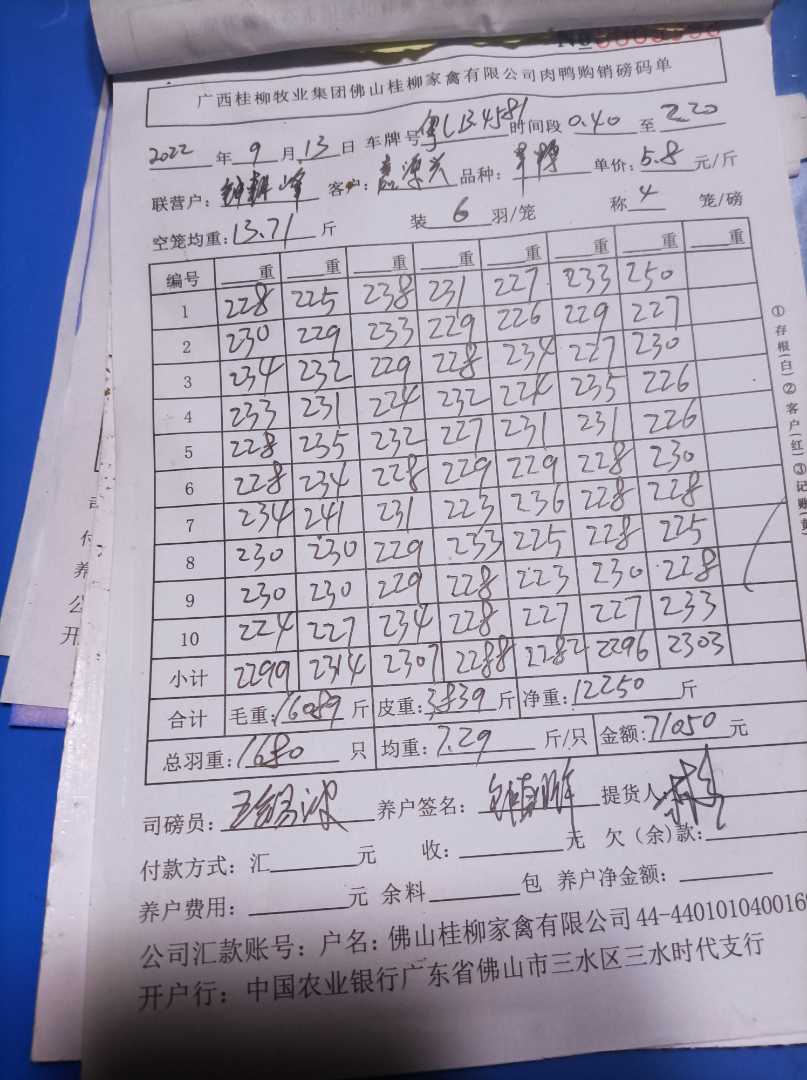 广西桂柳牧业集团佛山桂柳家禽有限公司肉鸭购销磅码单
2022 年 9 月 13 日 车牌号 粤L134581 时间段 0.40 至 2.20
联营户: 客户: 品种: 单价: 5.8 元/斤
空笼均重: 13.71 斤 装 6 羽/笼 称 4 笼/磅
编号 重 重 重 重 重 重 重 重
1 228 225 238 231 227 233 250
2 230 229 233 229 226 229 227
3 234 232 229 228 234 227 230
4 233 231 224 232 224 235 226
5 228 235 232 227 231 231 226
6 228 234 228 229 229 228 230
7 234 241 231 223 236 228 228
8 230 230 229 233 225 228 225
9 230 230 229 228 223 230 228
10 224 227 234 228 227 227 233
小计 2299 2314 2307 2288 2282 2296 2303
合计 毛重: 16089 斤 皮重: 3839 斤 净重: 12250 斤
总羽重: 1680 只 均重: 7.29 斤/只 金额: 71050 元
司磅员: 养户签名: 提货人:
付款方式: 汇 元 收: 元 欠(余)款:
养户费用: 元 余料 包 养户净金额:
公司汇款账号: 户名: 佛山桂柳家禽有限公司 44-440101040016
开户行: 中国农业银行广东省佛山市三水区三水时代支行
①存根(白)②客户(红)③记账(黄)